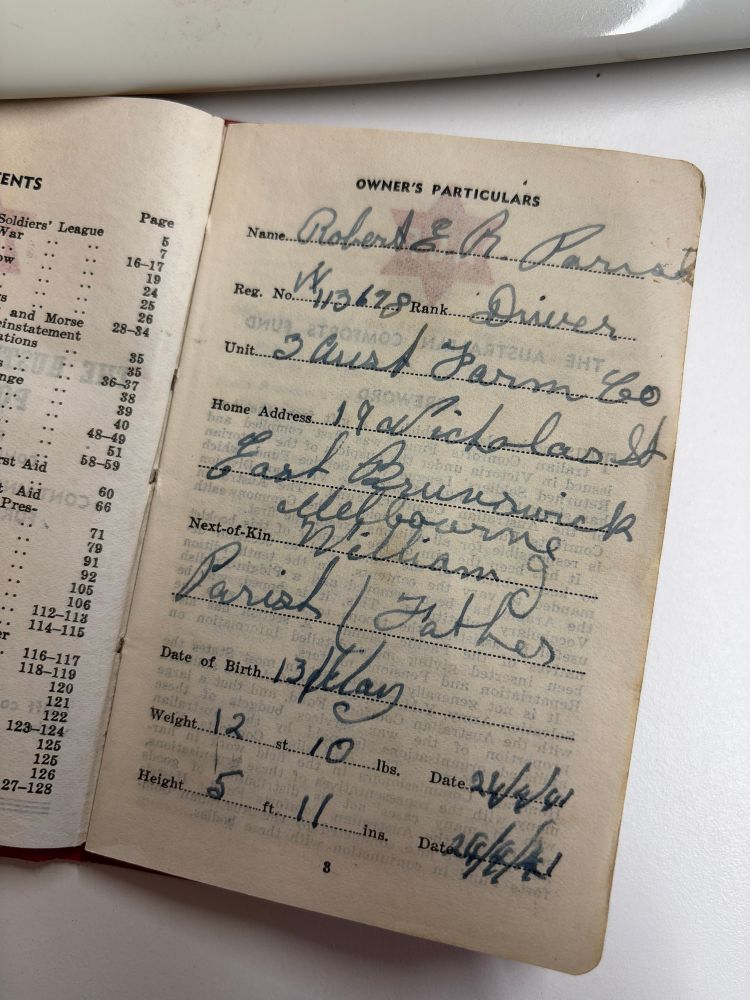 ENTS
Page
Soldiers' League .. .. 5
War .. .. .. 7
.. .. 16–17
ow .. .. 19
.. .. 24
rs .. .. 25
and Morse 26
einstatement 28–34
ations .. ..
.. .. 35
s .. .. 35
nge .. .. 36–37
.. .. 38
.. .. 39
.. .. 40
.. .. 48–49
.. .. 51
rst Aid 58–59
..
t Aid 60
Pres- 66
..
.. 71
.. 79
.. 91
.. 92
.. 105
.. 106
.. 112–113
er 114–115
..
.. 116–117
.. 118–119
.. 120
.. 121
.. 122
.. 123–124
.. 125
.. 125
.. 126
27–128
OWNER'S PARTICULARS
Name Robert E R. Parish
Reg. No. VX 113678 Rank Driver
Unit 3 Aust Farm Co
Home Address 19 Nicholas St
East Brunswick
Melbourne
Next-of-Kin William J
Parish / Father
Date of Birth 13/May
Weight 12 st. 10 lbs. Date
Height 5 ft. 11 ins. Date
3